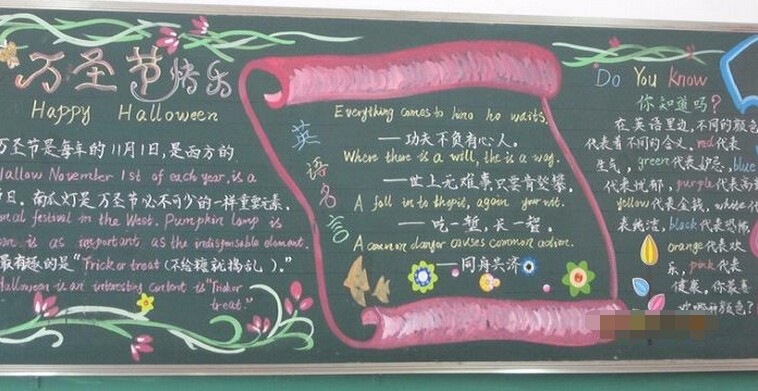 万圣节快乐
Happy Halloween
万圣节是每年的11月1日,是西方的
Hallow November 1st of each year, is a
节日。南瓜灯是万圣节必不可少的一样重要元素。
festival in the West. Pumpkin lamp is
is as important as the indispensable element.
最有趣的是“Trick or treat (不给糖就捣乱)。”
Halloween is an interesting content is "Trick or
treat."
英语名言
Everything comes to him ho waits.
——功夫不负有心人。
Where there is a will, the is a way.
——世上无难事只要肯登攀。
A fall in to the pit, again your wit.
——吃一堑,长一智。
A common danger causes common action.
——同舟共济
Do You Know
你知道吗?
在英语里边,不同的颜色
代表着不同的含义,red代表
生气,green代表妒忌,blue
代表忧郁,purple代表高贵
yellow代表金钱,white代
表纯洁,black代表恐怖,
orange代表欢
乐,pink代表
健康,你最喜
欢哪种颜色?